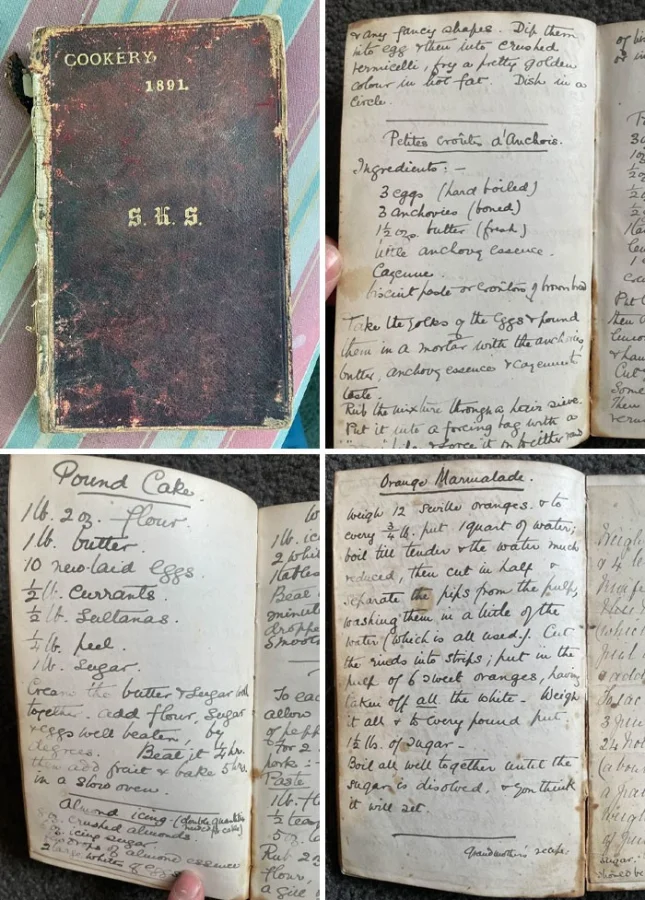 COOKERY,
1891.
S. K. S.
& any fancy shapes. Dip them
into egg & then into crushed
vermicelli, fry a pretty golden
colour in hot fat. Dish in a
circle.
Petites Croûtes d'Anchois.
Ingredients: —
3 eggs (hard boiled)
3 anchovies (boned)
1½ ozs butter (fresh)
little anchovy essence.
Cayenne.
biscuit paste or croûtons of brown bread
Take the yolks of the Eggs & pound
them in a mortar with the anchovies
butter, anchovy essence & cayenne to
taste.
Rub the mixture through a hair sieve.
Put it into a forcing bag with a
& force it on
Pound Cake.
1 lb. 2 oz. flour.
1 lb. butter.
10 new-laid eggs.
½ lb. Currants.
½ lb. Sultanas.
¼ lb. peel.
1 lb. sugar.
Cream the butter & sugar well
together. add flour, sugar
& eggs well beaten, by
degrees. Beat it ¼ hr.
then add fruit & bake 5 hrs.
in a slow oven.
Almond icing - (double quantities
crushed almonds.
icing sugar.
drops of almond essence
2 large whites of eggs
1 lb. ic
2 whit
Beat
minute
droppe
smooth
To eac
allow
of pepp
for 2
pork :-
Paste
1 lb. fl
½ teas
5 oz.
Rub 2
flour,
a gill
Orange Marmalade.
Weigh 12 Seville oranges. & to
every ¾ lb. put 1 quart of water;
boil till tender & the water much
reduced, then cut in half &
separate the pips from the pulp,
washing them in a little of the
water (which is all used). Cut
the rinds into strips; put in the
pulp of 6 sweet oranges, having
taken off all the white - Weigh
it all & to every pound put
1½ lbs. of sugar -
Boil all well together until the
sugar is disolved, & you think
it will set.
Grandmother's recipe.